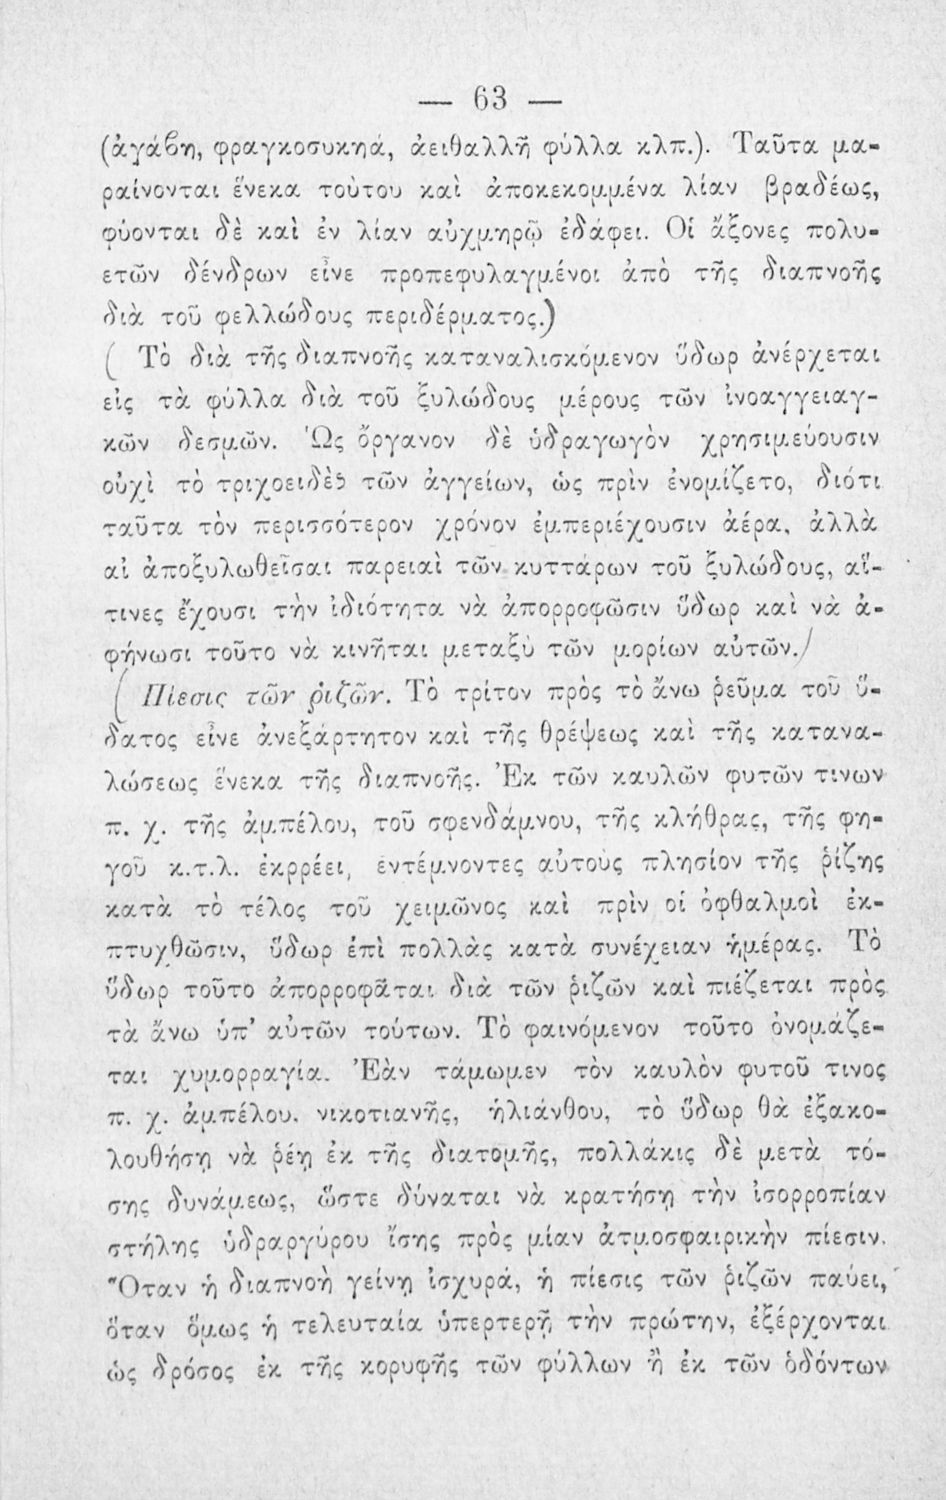 — 63 —
(ἀγάβη, φραγκοσυκηά, ἀειθαλλῆ φύλλα κλπ.). Ταῦτα μα-
ραίνονται ἕνεκα τούτου καὶ ἀποκεκομμένα λίαν βραδέως,
φύονται δὲ καὶ ἐν λίαν αὐχμηρῷ ἐδάφει. Οἱ ἄξονες πολυ-
ετῶν δένδρων εἶνε προπεφυλαγμένοι ἀπὸ τῆς διαπνοῆς
διὰ τοῦ φελλώδους περιδέρματος.)
( Τὸ διὰ τῆς διαπνοῆς καταναλισκόμενον ὕδωρ ἀνέρχεται
εἰς τὰ φύλλα διὰ τοῦ ξυλώδους μέρους τῶν ἰνοαγγειαγ-
κῶν δεσμῶν. Ὡς ὄργανον δὲ ὑδραγωγὸν χρησιμεύουσιν
οὐχὶ τὸ τριχοειδὲς τῶν ἀγγείων, ὡς πρὶν ἐνομίζετο, διότι
ταῦτα τὸν περισσότερον χρόνον ἐμπεριέχουσιν ἀέρα, ἀλλὰ
αἱ ἀποξυλωθεῖσαι παρειαὶ τῶν κυττάρων τοῦ ξυλώδους, αἵ-
τινες ἔχουσι τὴν ἰδιότητα νὰ ἀπορροφῶσιν ὕδωρ καὶ νὰ ἀ-
φήνωσι τοῦτο νὰ κινῆται μεταξὺ τῶν μορίων αὐτῶν.)
( Πίεσις τῶν ῥιζῶν. Τὸ τρίτον πρὸς τὸ ἄνω ῥεῦμα τοῦ ὕ-
δατος εἶνε ἀνεξάρτητον καὶ τῆς θρέψεως καὶ τῆς κατανα-
λώσεως ἕνεκα τῆς διαπνοῆς. Ἐκ τῶν καυλῶν φυτῶν τινων
π. χ. τῆς ἀμπέλου, τοῦ σφενδάμνου, τῆς κλήθρας, τῆς φη-
γοῦ κ.τ.λ. ἐκρρέει, ἐντέμνοντες αὐτοὺς πλησίον τῆς ῥίζης
κατὰ τὸ τέλος τοῦ χειμῶνος καὶ πρὶν οἱ ὀφθαλμοὶ ἐκ-
πτυχθῶσιν, ὕδωρ ἐπὶ πολλὰς κατὰ συνέχειαν ἡμέρας. Τὸ
ὕδωρ τοῦτο ἀπορροφᾶται διὰ τῶν ῥιζῶν καὶ πιέζεται πρὸς
τὰ ἄνω ὑπ’ αὐτῶν τούτων. Τὸ φαινόμενον τοῦτο ὀνομάζε-
ται χυμορραγία. Ἐὰν τάμωμεν τὸν καυλὸν φυτοῦ τινος
π. χ. ἀμπέλου, νικοτιανῆς, ἡλιάνθου, τὸ ὕδωρ θὰ ἐξακο-
λουθήσῃ νὰ ῥέῃ ἐκ τῆς διατομῆς, πολλάκις δὲ μετὰ τό-
σης δυνάμεως, ὥστε δύναται νὰ κρατήσῃ τὴν ἰσορροπίαν
στήλης ὑδραργύρου ἴσης πρὸς μίαν ἀτμοσφαιρικὴν πίεσιν.
Ὅταν ἡ διαπνοὴ γείνῃ ἰσχυρά, ἡ πίεσις τῶν ῥιζῶν παύει,
ὅταν ὅμως ἡ τελευταία ὑπερτερῇ τὴν πρώτην, ἐξέρχονται
ὡς δρόσος ἐκ τῆς κορυφῆς τῶν φύλλων ἢ ἐκ τῶν ὀδόντων